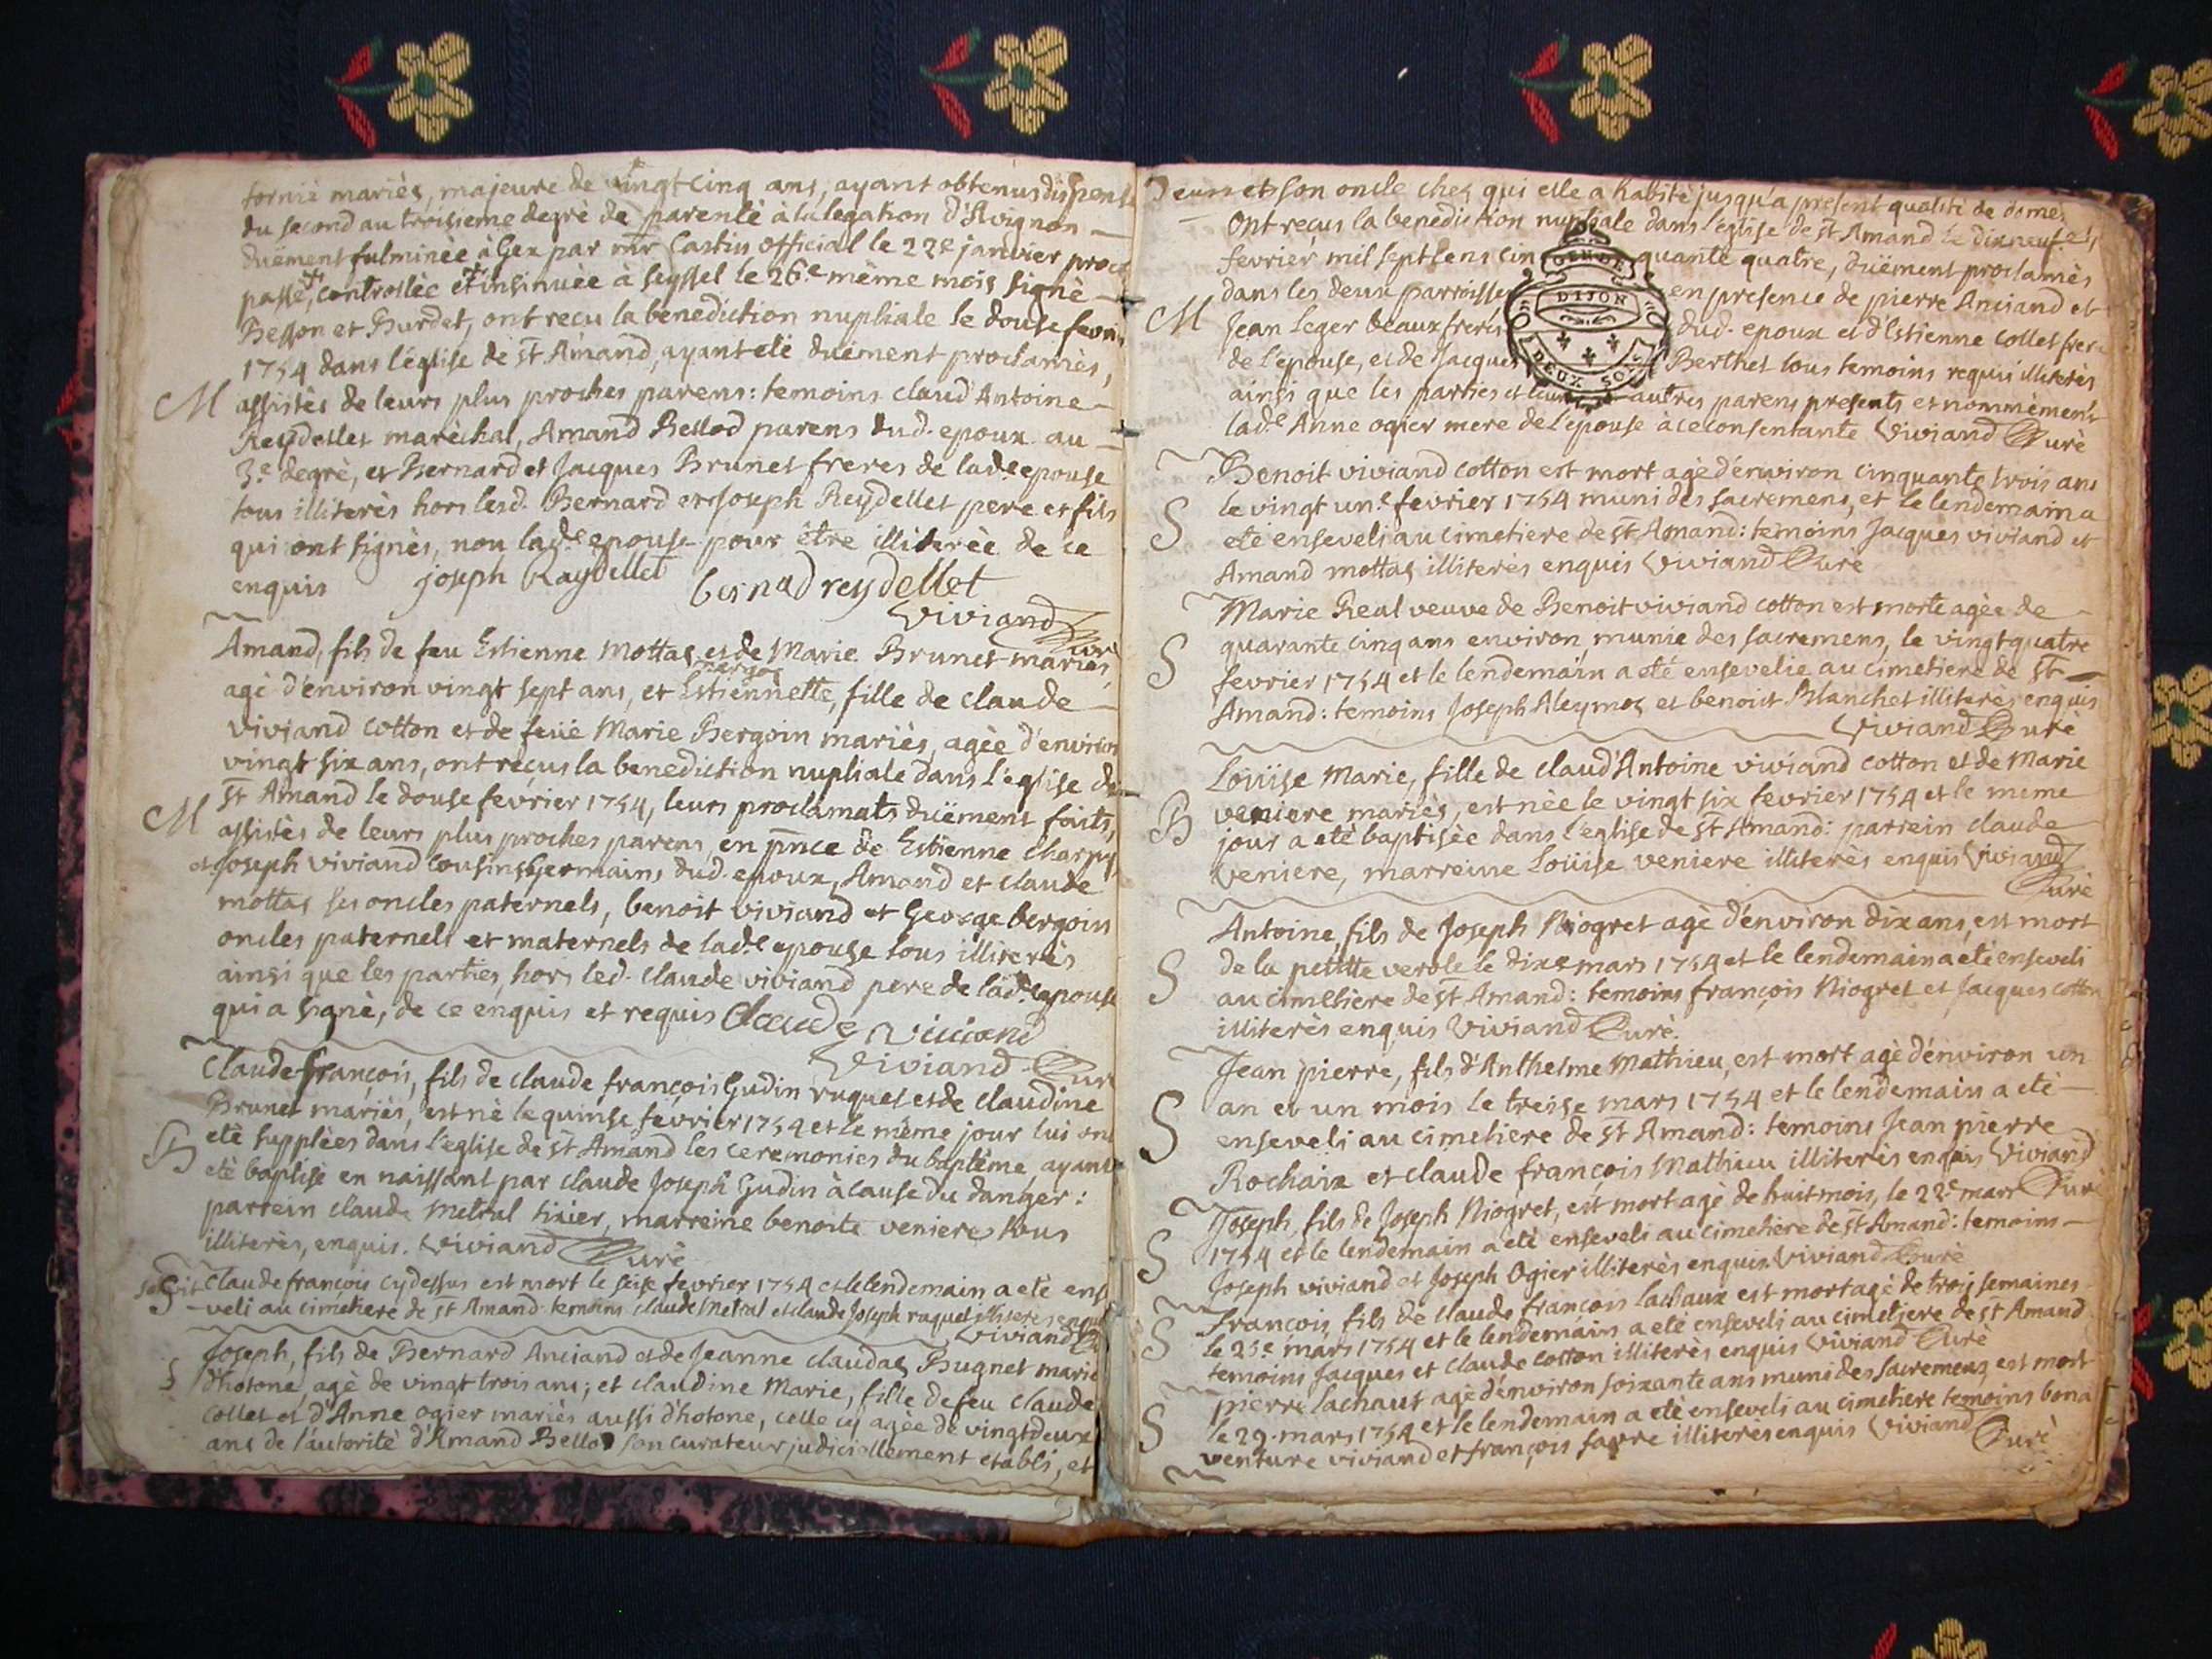 tornié mariés, majeure de vingt cinq ans, ayans obtenus dispense
du second au troisieme degré de parenté à la legation d'Avignon
duëment fulminée à Gex par mr Castin official le 22e janvier
passé, controllée et insinuée à Seyssel le 26e même mois signé
Besson et Burdet, ont recu la benediction nuptiale le douse
1754 dans l'église de st Amand, ayant eté duëment proclamés,
M assistés de leurs plus proches parens: temoins claud Antoine
Reydellet maréchal, Amand Bellod parens dud. epoux au
3e degré, et Bernard et Jacques Brunet freres de lad.e epouse
tous illiterés hors lesd. Bernard et Joseph Reydellet pere et fils
qui ont signés, non lad.e epouse pour être illiterée de ce
enquis joseph Raydellet bernad reydellet
Viviand Curé
Amand, fils de feu Estienne Mottas et de Marie Brunet mariés,
margot
agé d'environ vingt sept ans, et Estiennette, fille de claude
viviand cotton et de feüe Marie Bergoin mariés, agée d'environ
vingt six ans, ont reçus la benediction nuptiale dans l'église de
M st Amand le douse fevrier 1754, leurs proclamats duëment faits,
assistés de leurs plus proches parens, en pnce de Estienne Charpy
et Joseph viviand cousins germains dud. epoux, Amand et claude
mottas ses oncles paternels, benoit viviand et George bergoin
oncles paternels et maternels de lad.e epouse tous illiterés
ainsi que les parties, hors led. claude viviand pere de lad.e epouse
qui a signé, de ce enquis et requis Claude Viviand
Viviand Curé
Claude françois, fils de claude françois Gudin ruquet et de claudine
Brunet mariés, est né le quinse fevrier 1754 et le même jour lui ont
B eté supplées dans l'église de st Amand les ceremonies du baptême ayant
eté baptisé en naissant par claude Joseph Gudin à cause du danger:
parrein claude Metral tixier, marreine benoite veniere tous
illiterés, enquis. Viviand Curé
S Claude françois cydessus est mort le seise fevrier 1754 et le lendemain a eté ense
veli au cimetiere de st Amand temoins claude Metral et claude Joseph ruquet illiterés enquis
Viviand Curé
Joseph, fils de Bernard Anciand et de Jeanne claudas Bugnet mariés
d'hotone, agé de vingt trois ans; et claudine Marie, fille de feu claude
Collet et d'Anne ogier mariés aussi d'hotone, celle cy agée de vingt deux
ans de l'autorité d'Amand Bellod son curateur judiciellement etabli, et
et son oncle ches qui elle a habité jusqu'a present qualité de
ont reçus la benediction nuptiale dans l'église de st Amand le dix neuf
fevrier mil sept cens cinquante quatre, duëment proclamés
GENDE
dans les deux parroisses en presence de pierre Anciand et
DIJON
M Jean Leger beaux freres dud. epoux et d'Estienne collet frere
de l'epouse, et de Jacques Berthet tous temoins requis illiterés
DEUX SOLS
ainsi que les parties et leurs autres parens presents et nommément
lad.e Anne ogier mere de l'epouse à ce consentante Viviand Curé
Benoit viviand cotton est mort agé d'environ cinquante trois ans
S le vingt un.e fevrier 1754 muni des sacremens, et le lendemain a
eté enseveli au cimetiere de st Amand: temoins Jacques viviand et
Amand mottas illiterés enquis Viviand Curé
Marie Real veuve de Benoit viviand cotton est morte agée de
S quarante cinq ans environ, munie des sacremens, le vingt quatre
fevrier 1754 et le lendemain a eté ensevelie au cimetiere de st
Amand: temoins Joseph Aleymos et benoit Blanchet illiterés enquis
Viviand Curé
Loüise Marie, fille de claud Antoine viviand cotton et de Marie
B veniere mariés, est née le vingt six fevrier 1754 et le meme
jour a eté baptisée dans l'église de st Amand: parrein claude
veniere, marreine Loüise veniere illiterés enquis Viviand
Curé
Antoine, fils de Joseph Niogret agé d'environ dix ans, est mort
S de la petitte verole le dix.e mars 1754 et le lendemain a eté enseveli
au cimetiere de st Amand: temoins françois Niogret et Jacques cotton
illiterés enquis Viviand Curé
Jean pierre, fils d'Anthelme Mathieu, est mort agé d'environ un
S an et un mois le treise mars 1754 et le lendemain a eté
enseveli au cimetiere de st Amand: temoins Jean pierre
Rochaix et claude françois Mathieu illiterés enquis Viviand
Curé
Joseph, fils de Joseph Niogret, est mort agé de huit mois, le 22e mars
S 1754 et le lendemain a eté enseveli au cimetiere de st Amand: temoins
Joseph viviand et Joseph Ogier illiterés enquis Viviand Curé
françois, fils de claude françois lachaux est mort agé de trois semaines
S le 23e mars 1754 et le lendemain a eté enseveli au cimetiere de st Amand
temoins Jacques et Claude cotton illiterés enquis Viviand Curé
pierre lachaut agé d'environ soixante ans muni des sacremens, est mort
S le 29. mars 1754 et le lendemain a eté enseveli au cimetiere temoins bona
venture viviand et françois favre illiterés enquis Viviand Curé